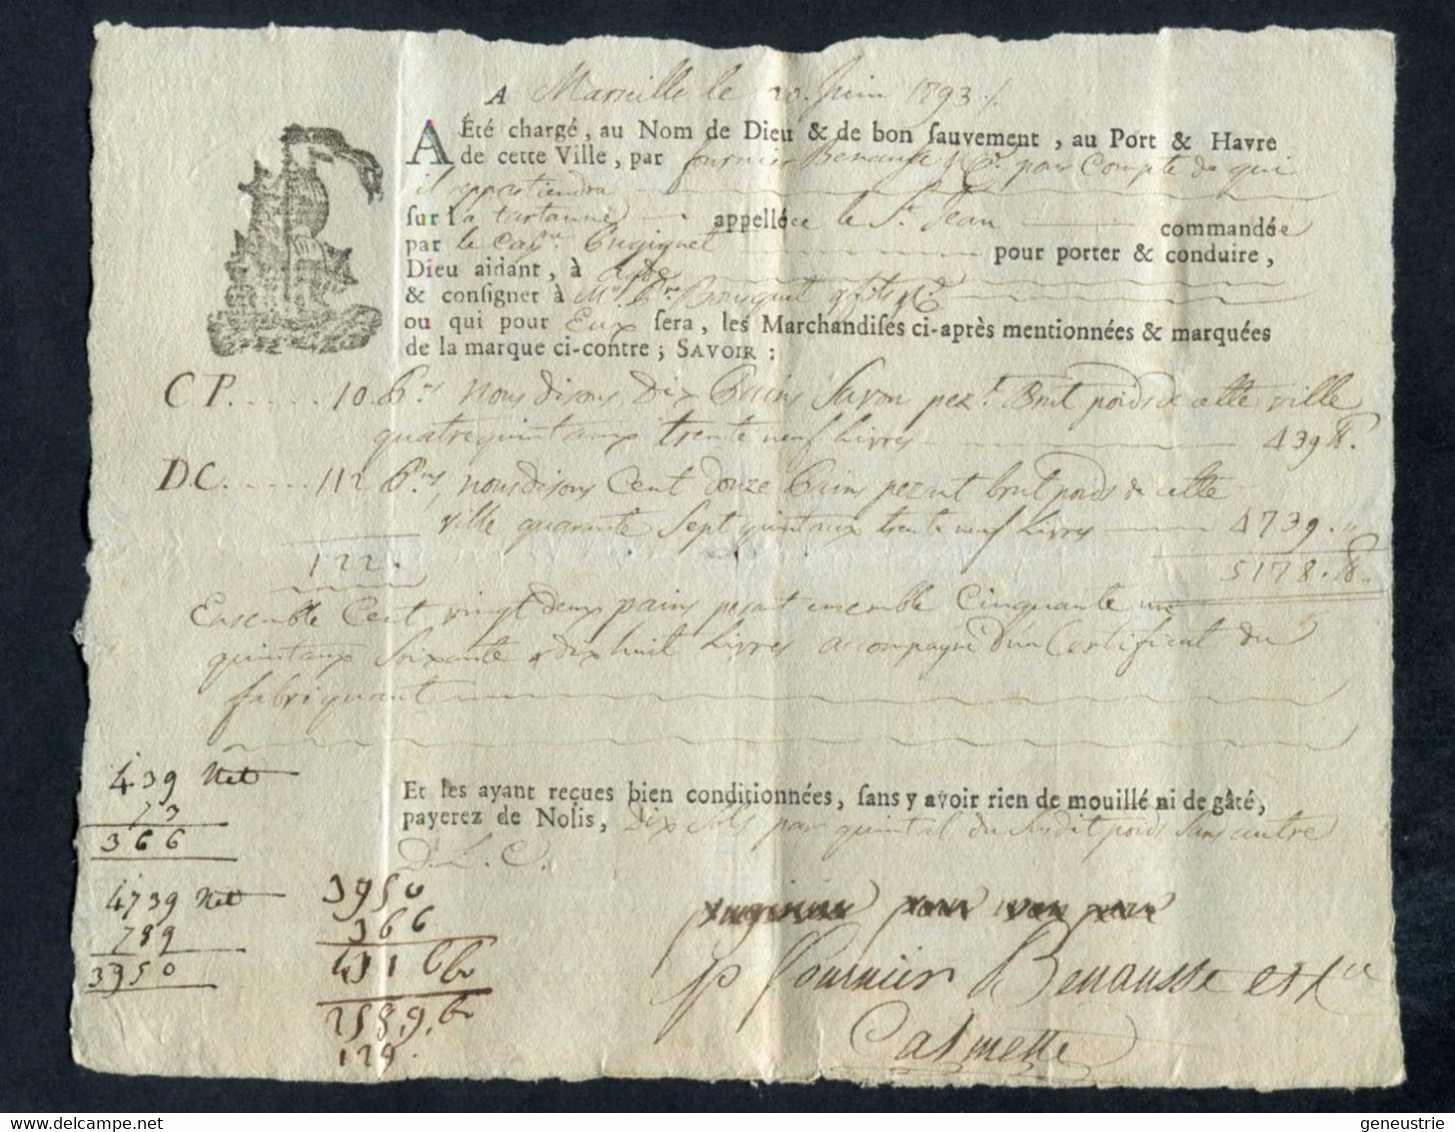 A Marseille le 20. Juin 1793 /.
A Été chargé, au Nom de Dieu & de bon sauvement, au Port & Havre
de cette Ville, par fournier Benausse & Ce. pour Compte de qui
il appartiendra
sur la tartanne appellée le St. Jean commandée
par le Capne. Pugignet pour porter & conduire,
Dieu aidant, à Agde
& consigner à Mrs. Bousquet & fils & Ce.
ou qui pour Eux sera, les Marchandises ci-après mentionnées & marquées
de la marque ci-contre; SAVOIR:
C P. . . . . . 10. Pns nous disons Dix Pains Savon pezt. Brut poids de cette ville
quatre quintaux trente neuf Livres 439 ℔.
D C. . . . . . 112 Pns, nous disons Cent Douze Pains pezant brut poids de cette
ville quarante Sept quintaux trente neuf Livres 4739. "
122. 5178. ℔.
Ensemble Cent vingt deux pains pezant ensemble Cinquante un
quintaux Soixante & dix huit Livres accompagné d'un Certificat du
fabriquant
Et les ayant reçues bien conditionnées, sans y avoir rien de mouillé ni de gâté,
payerez de Nolis, Dix Sols par quintal du Susdit poids Sans autre
D. L. C.
439 Net
73
366
4739 Net
789
3950
3950
366
431 6
258,9,
129.
pp Fournier Benausse et Cie
Calmette
geneustrie